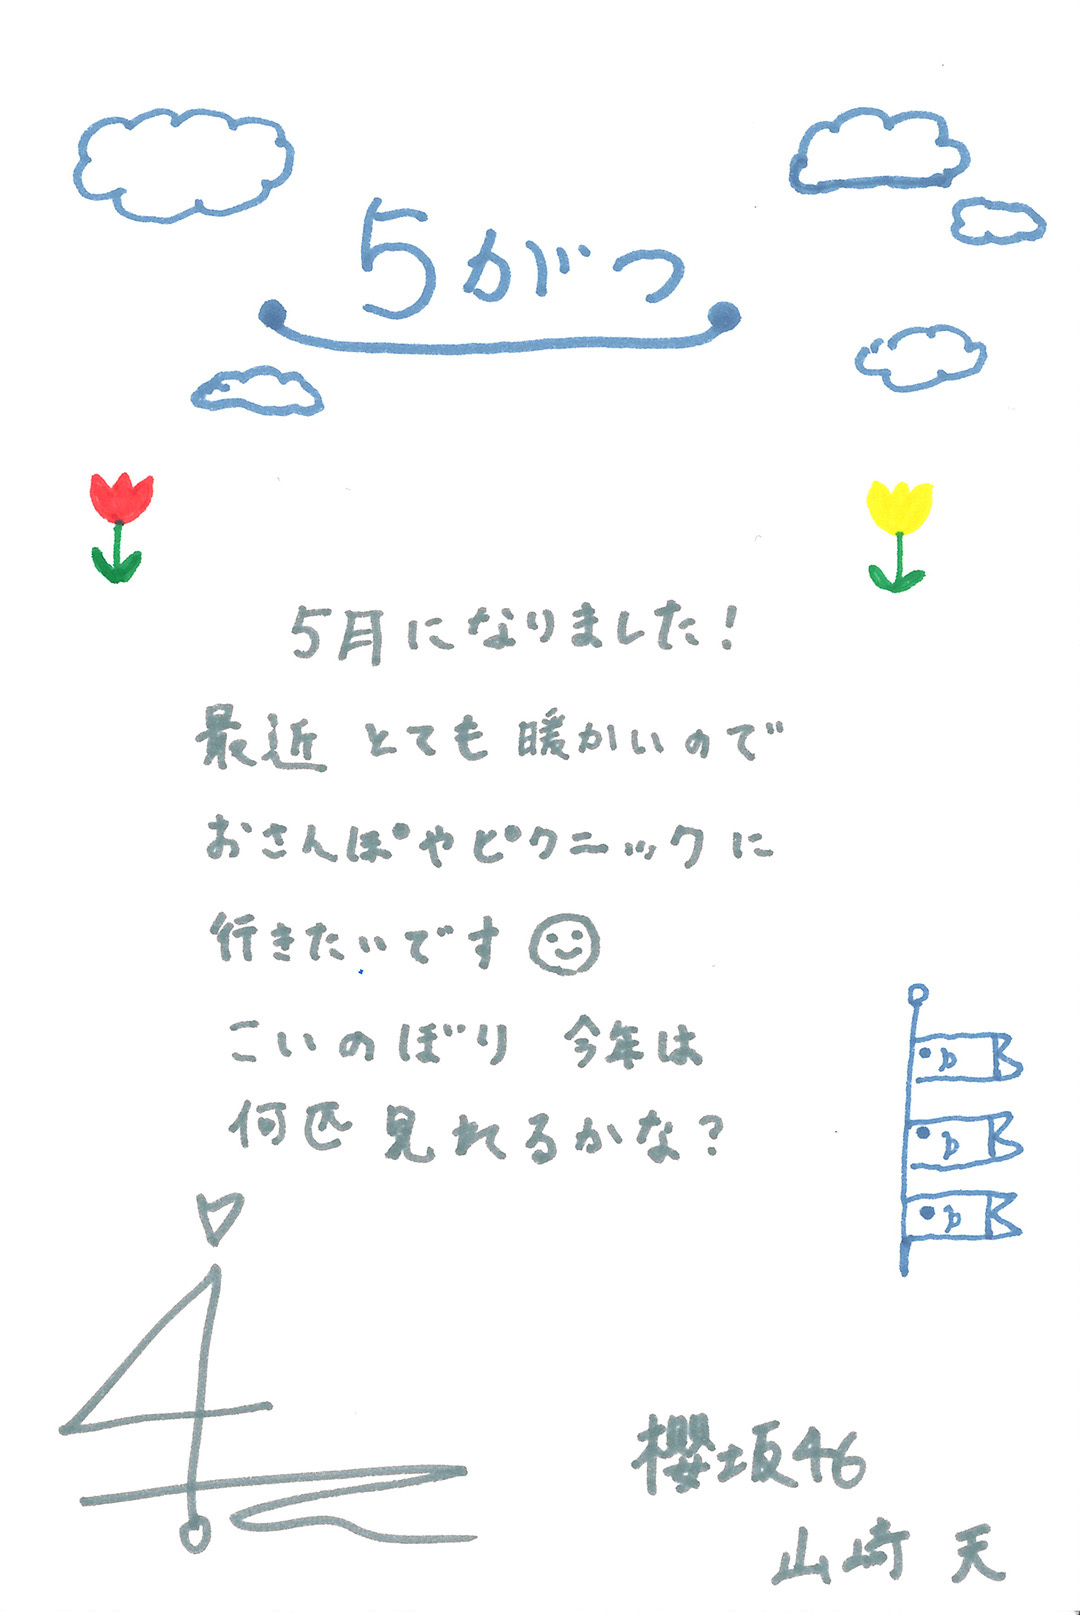 5がつ
5月になりました!
最近 とても 暖かいので
おさんぽやピクニックに
行きたいです
こいのぼり 今年は
何匹 見れるかな?
櫻坂46
山﨑 天